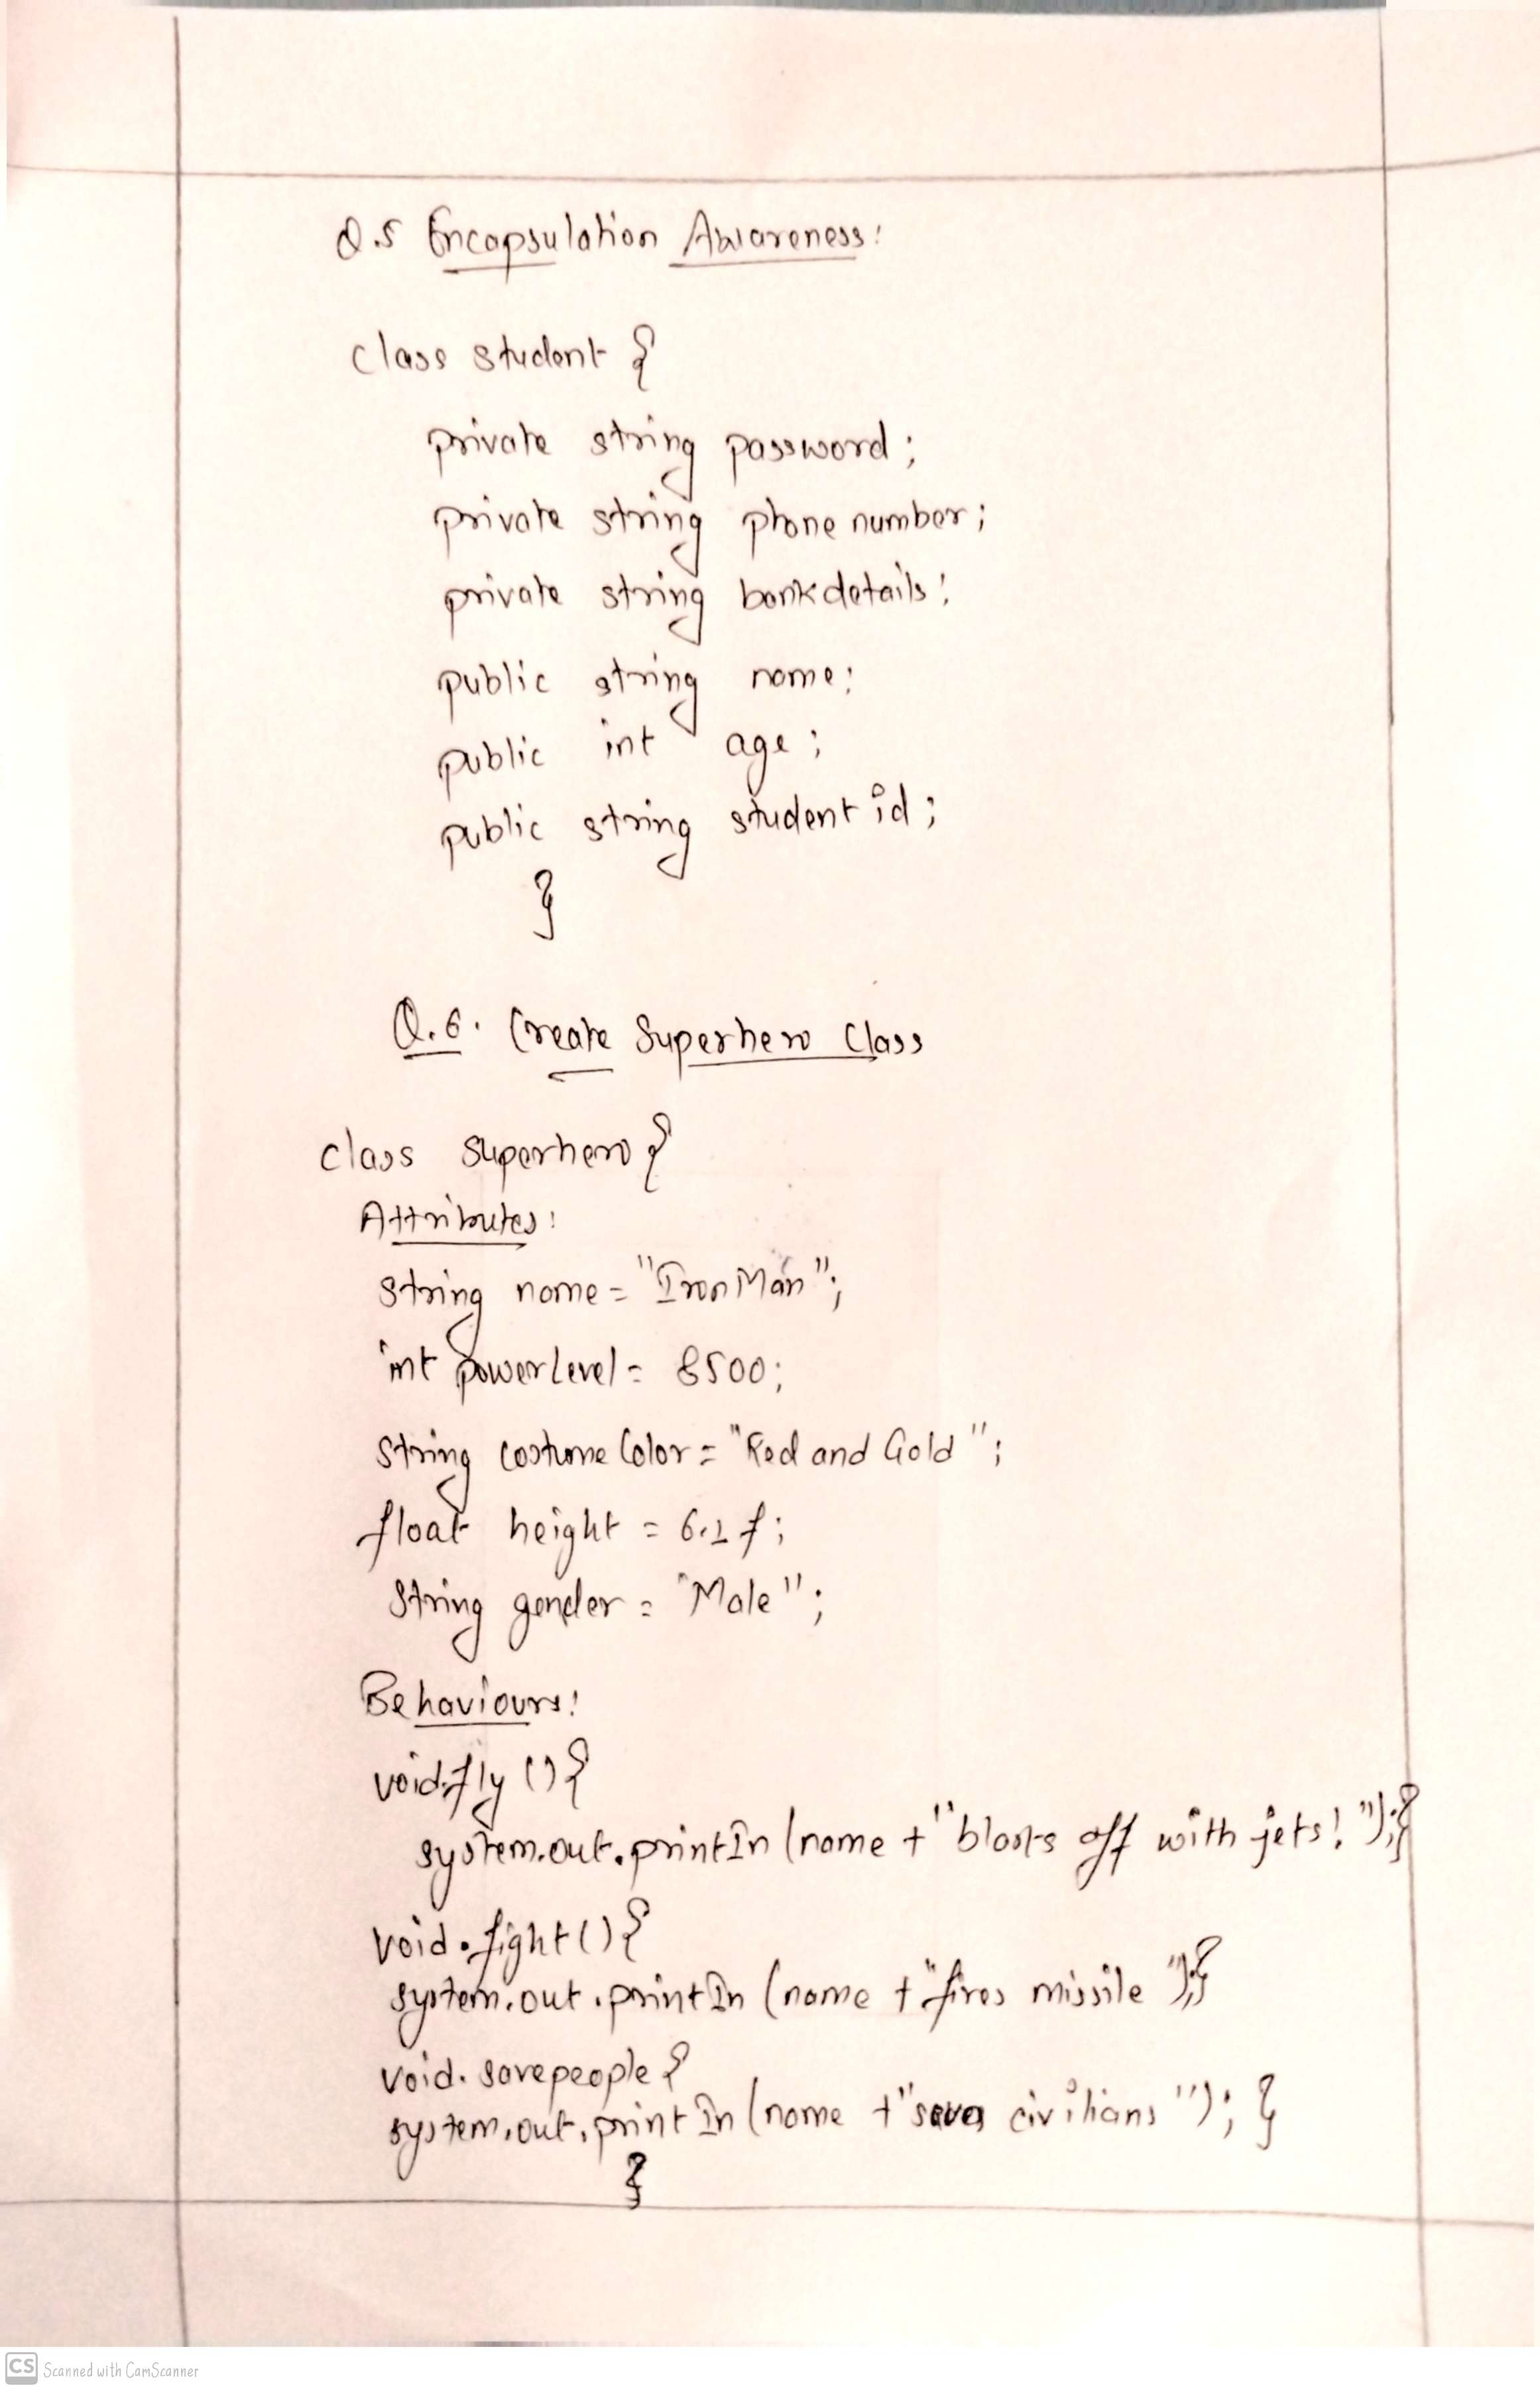 Q.5 Encapsulation Awareness:
class student {
private string password;
private string phone number;
private string bankdetails;
public string name;
public int age;
public string student id;
}
Q.6. Create Superhero Class
class superhero {
Attributes:
string name = "Iron Man";
int powerlevel = 8500;
String costume Color = "Red and Gold";
float height = 6.1 f;
String gender = "Male";
Behaviours:
void.fly () {
system.out.printIn (name + "blasts off with jets!");}
void.fight() {
system.out.printIn (name + "fires missile");}
void.savepeople {
system.out.printIn (name + "saves civilians"); }
}
CS Scanned with CamScanner